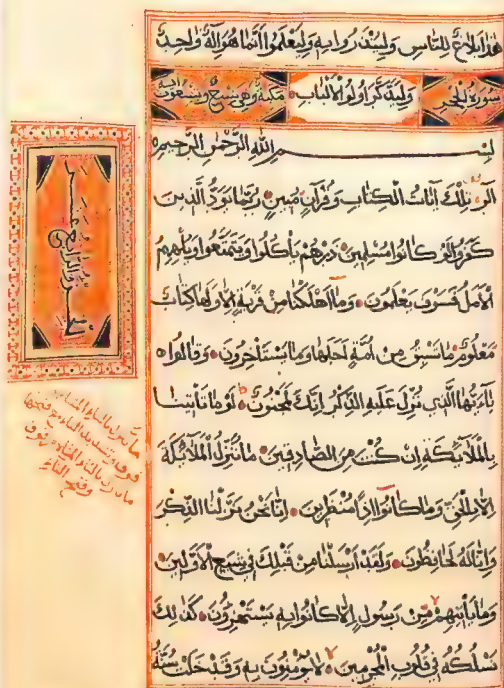 هذا بلاغ للناس ولينذروا به وليعلموا انما هو اله واحد
سورة الحجر وليذكر اولوا الالباب مكية وهي تسع وتسعون اية
بسم الله الرحمن الرحيم
الر تلك ايات الكتاب وقرآن مبين ربما يود الذين
كفروا لو كانوا مسلمين ذرهم يأكلوا ويتمتعوا ويلههم
الامل فسوف يعلمون وما اهلكنا من قرية الا ولها كتاب
معلوم ما تسبق من امة اجلها وما يستأخرون وقالوا
يا ايها الذي نزل عليه الذكر انك لمجنون لو ما تأتينا
بالملائكة ان كنت من الصادقين ما ننزل الملائكة
الا بالحق وما كانوا اذا منظرين انا نحن نزلنا الذكر
وانا له لحافظون ولقد ارسلنا من قبلك في شيع الاولين
وما يأتيهم من رسول الا كانوا به يستهزؤن كذلك
نسلكه في قلوب المجرمين لا يؤمنون به وقد خلت سنة